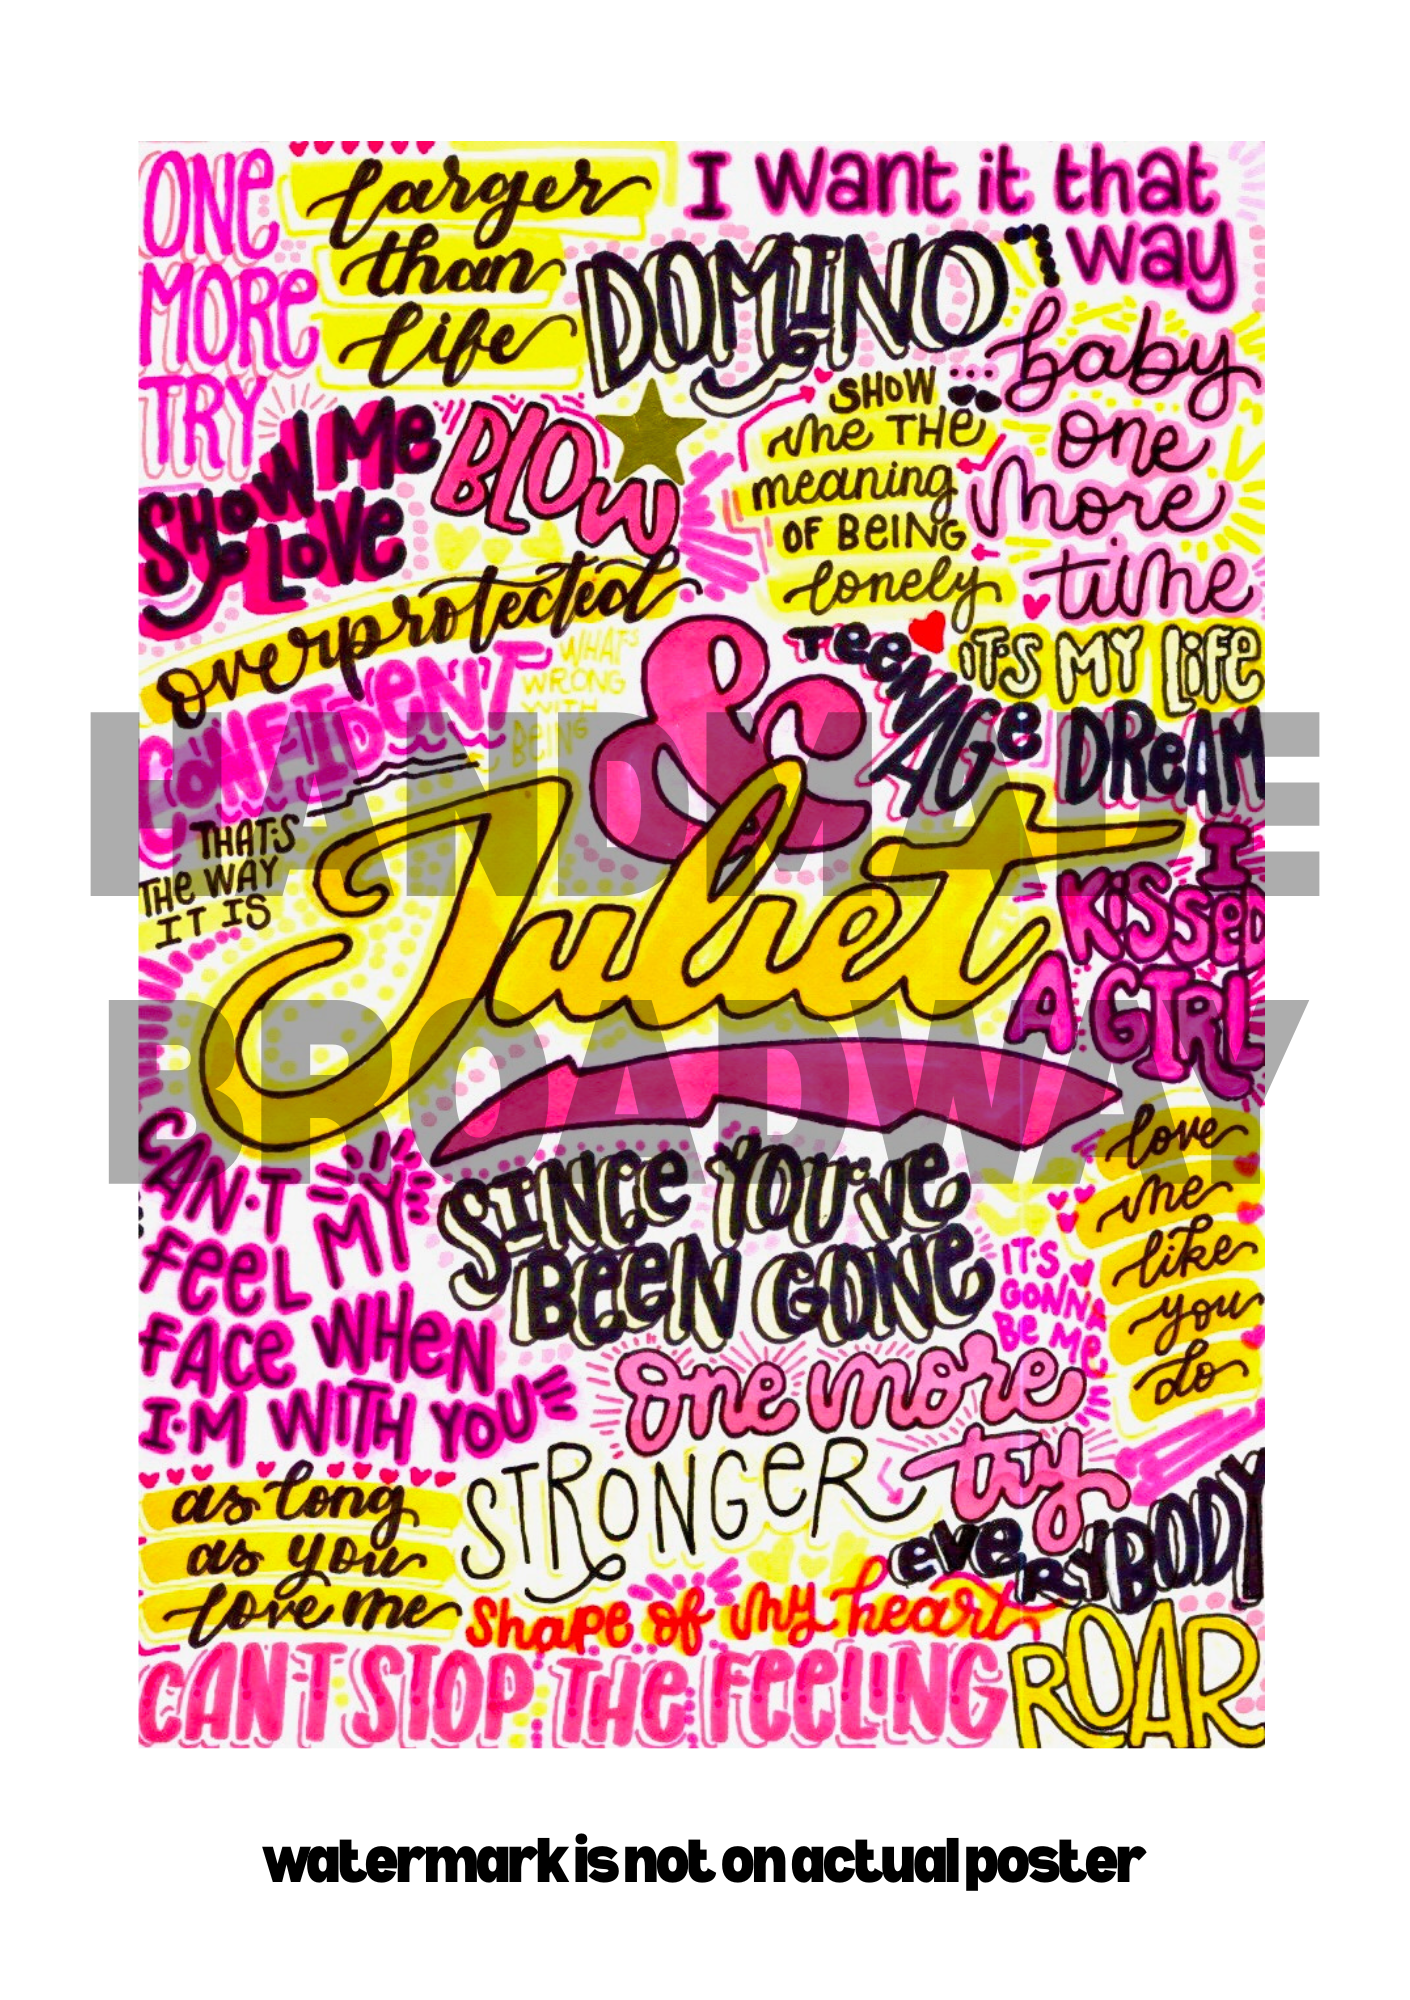 ONE
MORE
TRY
larger
than
life
I want it that
way
DOMINO
baby
one
more
time
SHOW
me THE
meaning
OF BEING
lonely
SHOW ME
LOVE
BLOW
overprotected
CONFIDENT
WHAT'S
WRONG
WITH
BEING
TEENAGE DREAM
IT'S MY LIFE
&
Juliet
THAT'S
THE WAY
IT IS
I
KISSED
A GIRL
HANDMADE
BROADWAY
CAN'T
FEEL MY
FACE WHEN
I'M WITH YOU
SINCE YOU'VE
BEEN GONE
IT'S
GONNA
BE ME
love
me
like
you
do
one more
try
STRONGER
as long
as you
love me
EVERYBODY
shape of my heart
CAN'T STOP THE FEELING
ROAR
watermark is not on actual poster